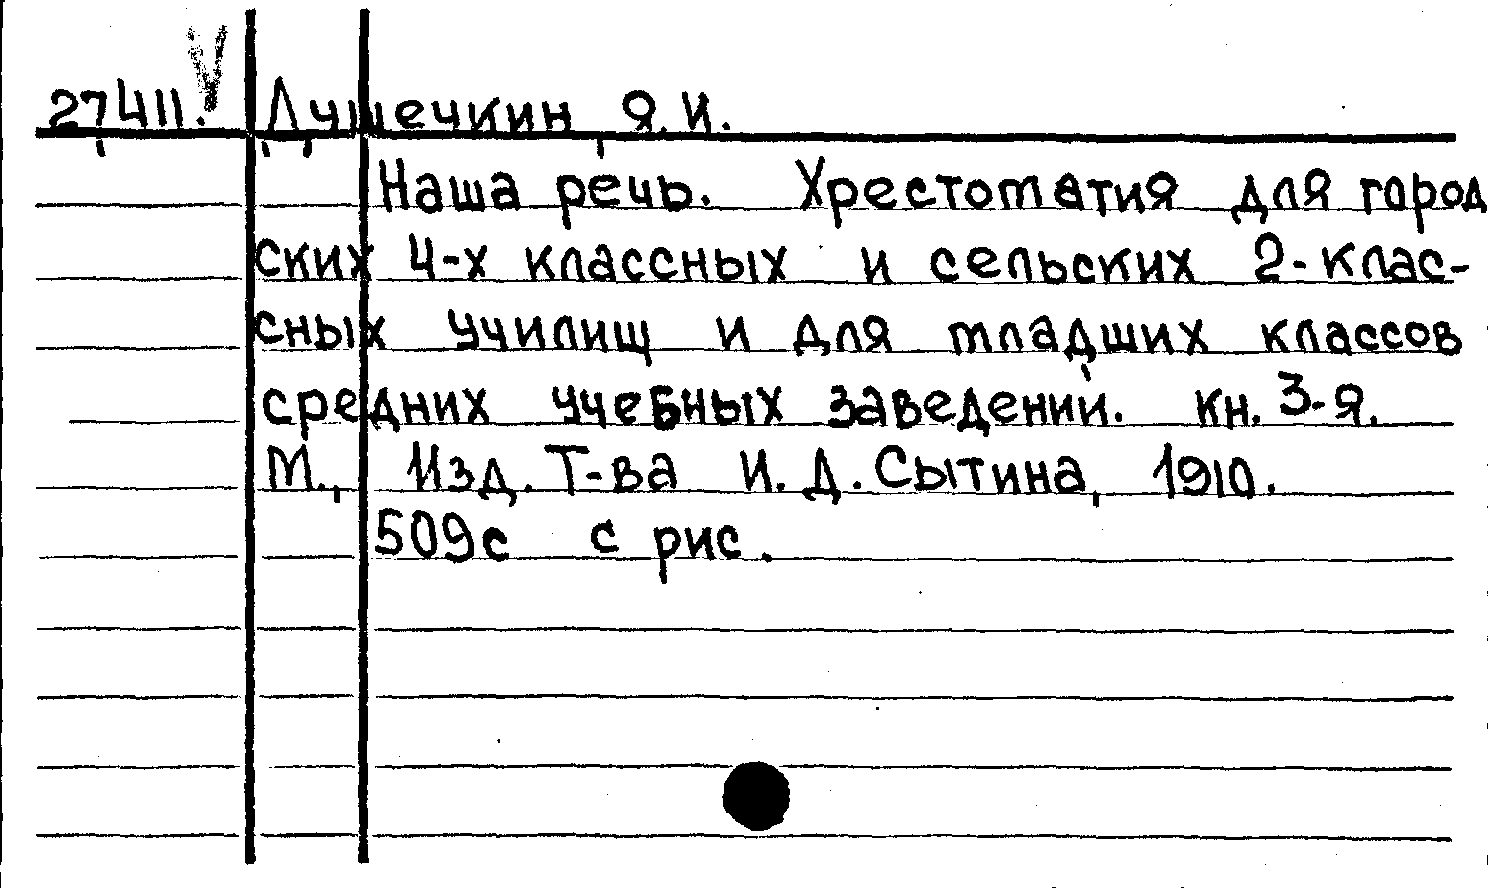 27411. V Душечкин Я.И.
Наша речь. Хрестоматия для город
ских 4-х классных и сельских 2-клас-
сных училищ и для младших классов
средних учебных заведений. кн. 3-я.
М., Изд. Т-ва И. Д. Сытина, 1910.
509с с рис.